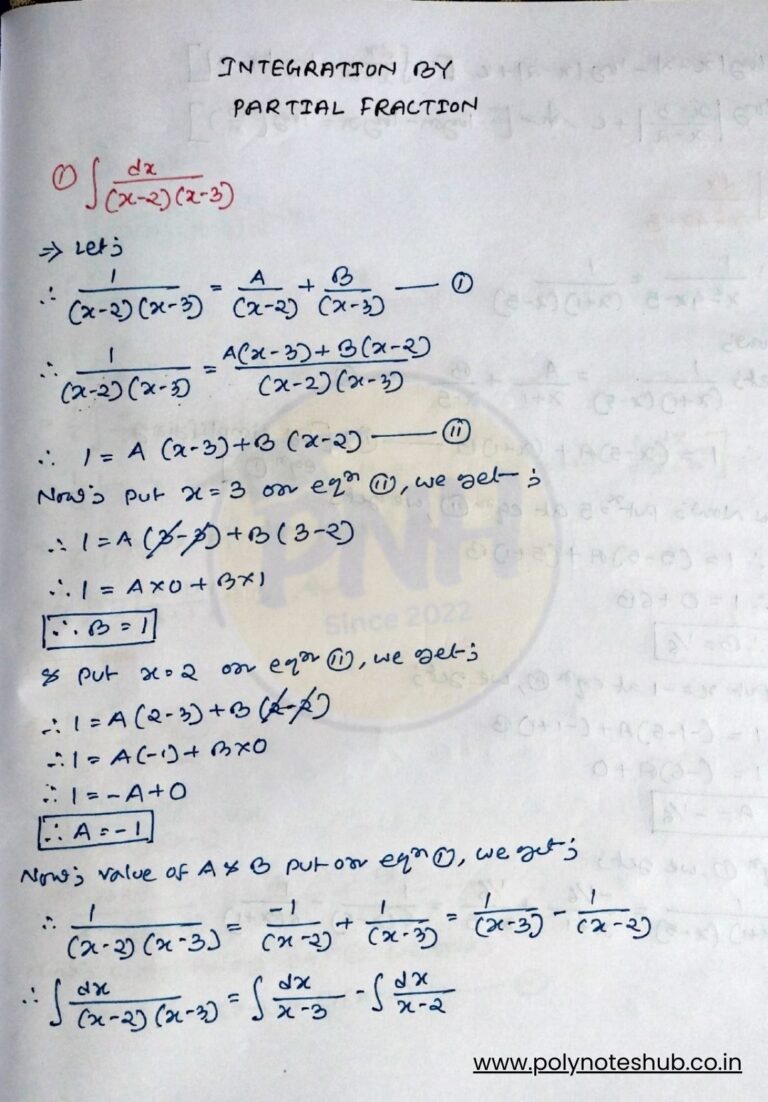 INTEGRATION BY
PARTIAL FRACTION
① ∫ dx/(x-2)(x-3)
⇒ Let;
∴ 1/(x-2)(x-3) = A/(x-2) + B/(x-3) — ①
∴ 1/(x-2)(x-3) = A(x-3)+B(x-2)/(x-2)(x-3)
∴ 1 = A (x-3)+B (x-2) — ⑪
Now; put x=3 on eqn ⑪, we get;
∴ 1=A(3-3)+B(3-2)
∴ 1 = A×0 + B×1
∴ B = 1
& put x=2 on eqn ⑪, we get;
∴ 1=A(2-3)+B(2-2)
∴ 1=A(-1)+B×0
∴ 1=-A+0
∴ A=-1
Now; value of A & B put on eqn ①, we get;
∴ 1/(x-2)(x-3) = -1/(x-2) + 1/(x-3) = 1/(x-3) - 1/(x-2)
∴ ∫ dx/(x-2)(x-3) = ∫ dx/x-3 - ∫ dx/x-2
PNH
Since 2022
www.polynoteshub.co.in